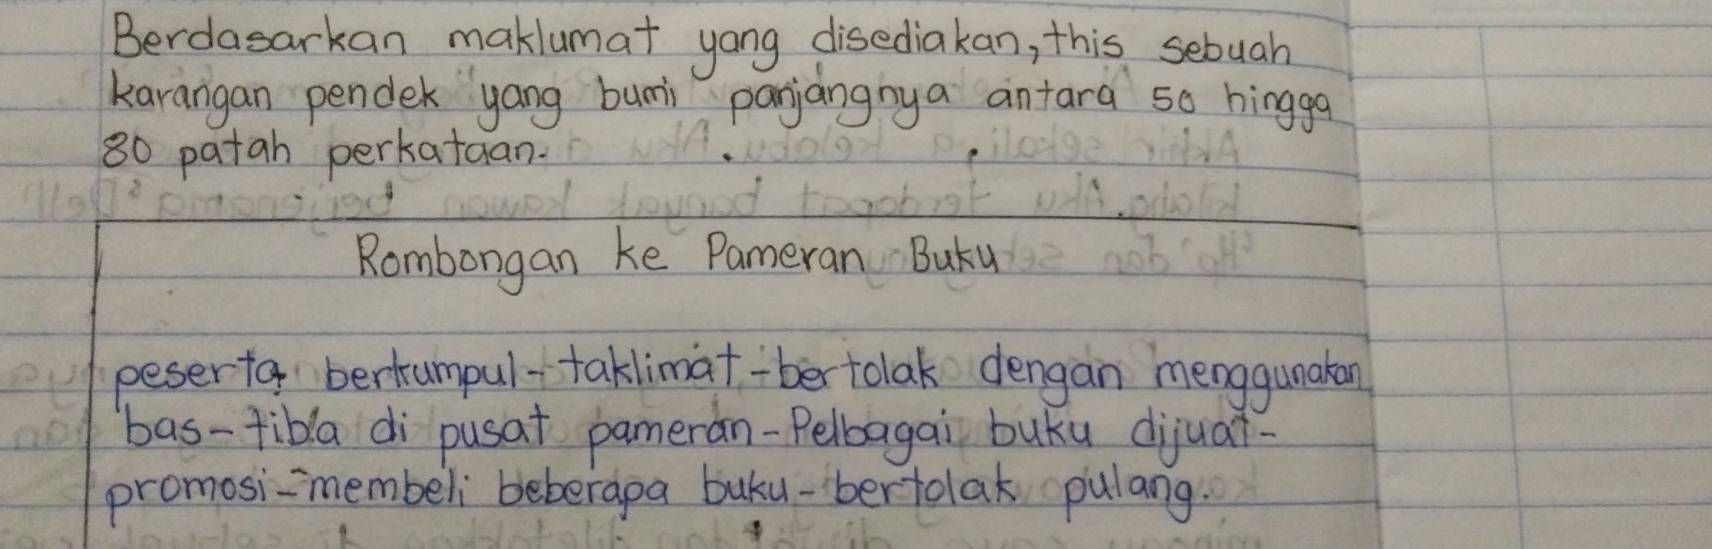 Berdasarkan maklumat yang disediakan, this sebuah
karangan pendek yang bumi panjangnya antara 50 hingga
80 patah perkataan.
Rombongan ke Pameran Buku
peserta berkumpul - taklimat - bertolak dengan menggunakan
bas - tiba di pusat pameran - Pelbagai buku dijual -
promosi - membeli beberapa buku - bertolak pulang.